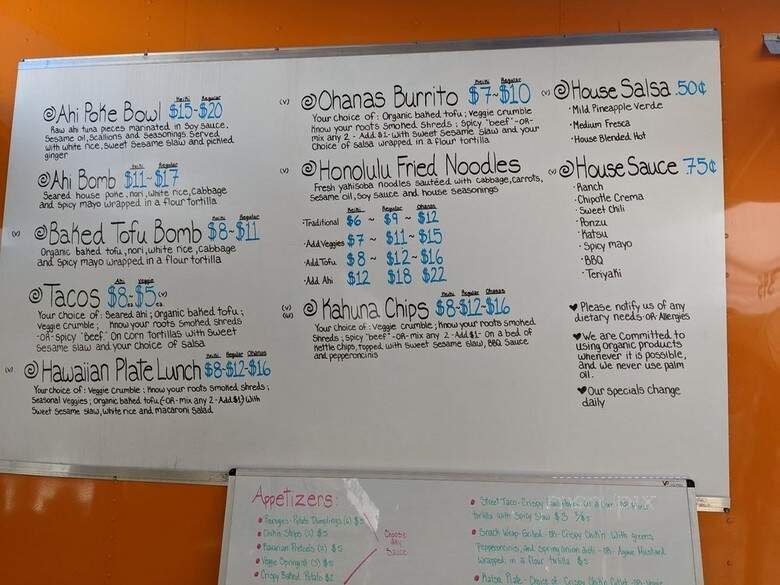 Keiki Regular
Ahi Poke Bowl $15-$20
Raw ahi tuna pieces marinated in soy sauce,
sesame oil, scallions and seasonings served
with white rice, sweet sesame slaw and pickled
ginger
Keiki Regular
Ahi Bomb $11~$17
Seared house poke, nori, white rice, cabbage
and spicy mayo wrapped in a flour tortilla
Keiki Regular
(v) Baked Tofu Bomb $8~$11
Organic baked tofu, nori, white rice, cabbage
and spicy mayo wrapped in a flour tortilla
Ahi Veggie
Tacos $8ea. $5ea. (v)
Your choice of: Seared ahi; organic baked tofu;
veggie crumble; know your roots smoked shreds
-OR- spicy "beef." On corn tortillas with sweet
sesame slaw and your choice of salsa
Keiki Regular Ohana
(v) Hawaiian Plate Lunch $8-$12-$16
Your choice of: Veggie crumble; know your roots smoked shreds;
Seasonal veggies; organic baked tofu (-OR- mix any 2 - Add $1) with
sweet sesame slaw, white rice and macaroni salad
Keiki Regular
(v) Ohanas Burrito $7~$10
Your choice of: Organic baked tofu; veggie crumble
know your roots smoked shreds; spicy "beef" -OR-
mix any 2 - Add $1- with sweet sesame slaw and your
choice of salsa wrapped in a flour tortilla
(v) Honolulu Fried Noodles
Fresh yakisoba noodles sautéed with cabbage, carrots,
sesame oil, soy sauce and house seasonings
Keiki Regular Ohana
·Traditional $6 ~ $9 ~ $12
·Add Veggies $7 ~ $11~ $15
·Add Tofu $8 ~ $12~ $16
·Add Ahi $12 $18 $22
Keiki Regular Ohana
(v) Kahuna Chips $8-$12-$16
Your choice of: Veggie crumble; know your roots smoked
shreds; spicy "beef" -OR- mix any 2 - Add $1- On a bed of
kettle chips, topped with sweet sesame slaw, BBQ sauce
and pepperoncinis
(v) House Salsa .50¢
·Mild Pineapple Verde
·Medium Fresca
·House Blended Hot
(v) House Sauce .75¢
·Ranch
·Chipotle Crema
·Sweet Chili
·Ponzu
·Katsu
·Spicy mayo
·BBQ
·Teriyaki
♥ Please notify us of any
dietary needs -OR- Allergies
♥ We are committed to
using organic products
whenever it is possible,
and we never use palm
oil.
♥ Our specials change
daily
Appetizers:
Potato Dumplings $5
Chikin Strips $5
Hawaiian Pretzels $5
Veggie Springroll $5
Crispy Baked Potato $2
Choose
any
Sauce
Street Taco - Crispy
tortilla with Spicy Slaw $3
Snack Wrap - Grilled -OR- Crispy Chik'n with greens,
Pepperoncinis, and spring onion aioli -OR- Agave Mustard
wrapped in a flour tortilla $5
Katsu Plate - Choice of: Crispy Chik'n